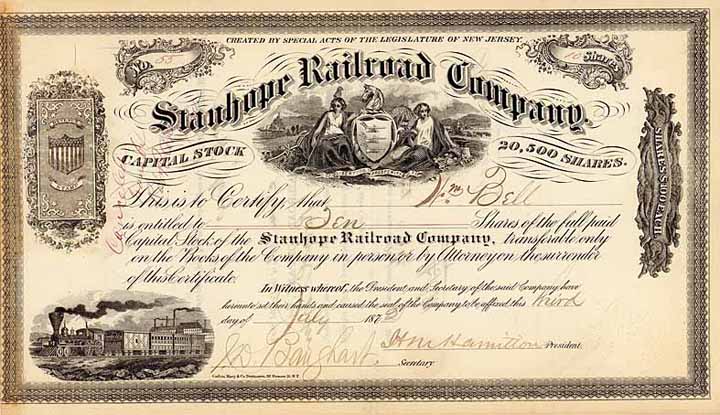 CREATED BY SPECIAL ACTS OF THE LEGISLATURE OF NEW JERSEY.
No. 55
10 Shares
Stanhope Railroad Company.
CAPITAL STOCK
20,500 SHARES.
Cancelled
This is to Certify, that Wm Bell
is entitled to Ten Shares of the full paid
Capital Stock of the Stanhope Railroad Company, transferable only
on the Books of the Company in person, or by Attorney on the surrender
of this Certificate.
In Witness whereof, the President and Secretary of the said Company have
hereunto set their hands and caused the seal of the Company to be affixed this third
day of July 187
President.
Secretary
SHARES $100 EACH